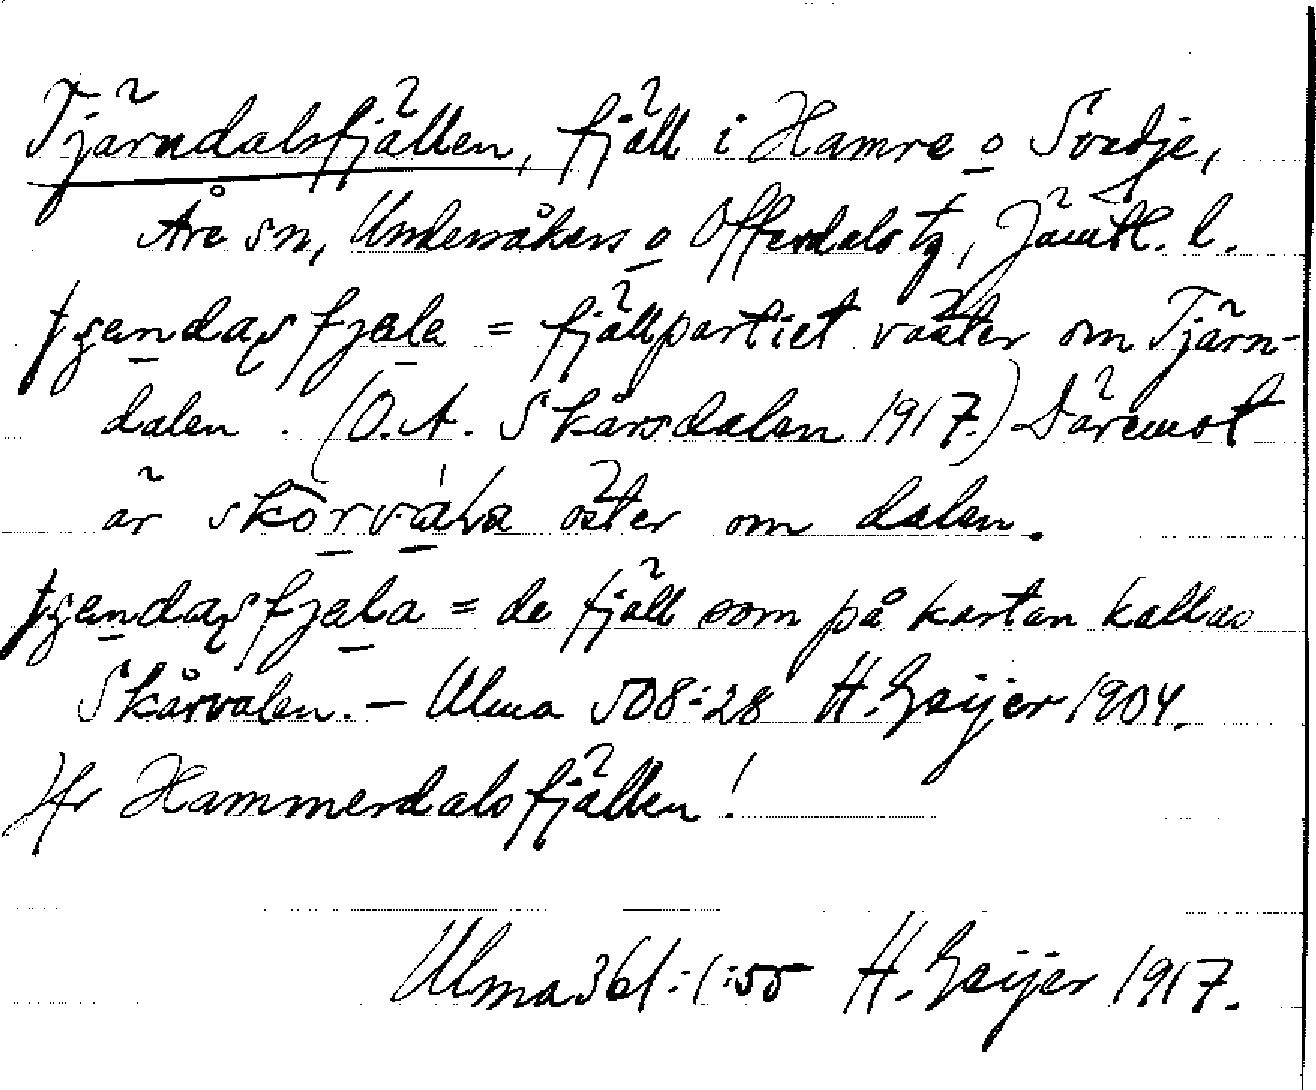 Tjärndalsfjällen, fjäll i Hamre o Svedje,
Åre sn, Undersåkers o Offerdals tg, Jämtl. l.
= fjällpartiet väster om Tjärn-
dalen. (O.A. Skårsdalen 1917.) Däremot
är öster om dalen.
= de fjäll som på kartan kallas
Skårvalen. – Ulma 508:28 H. Geijer 1904.
Jfr Hammerdalsfjällen!
Ulma 361:1:55 H. Geijer 1917.